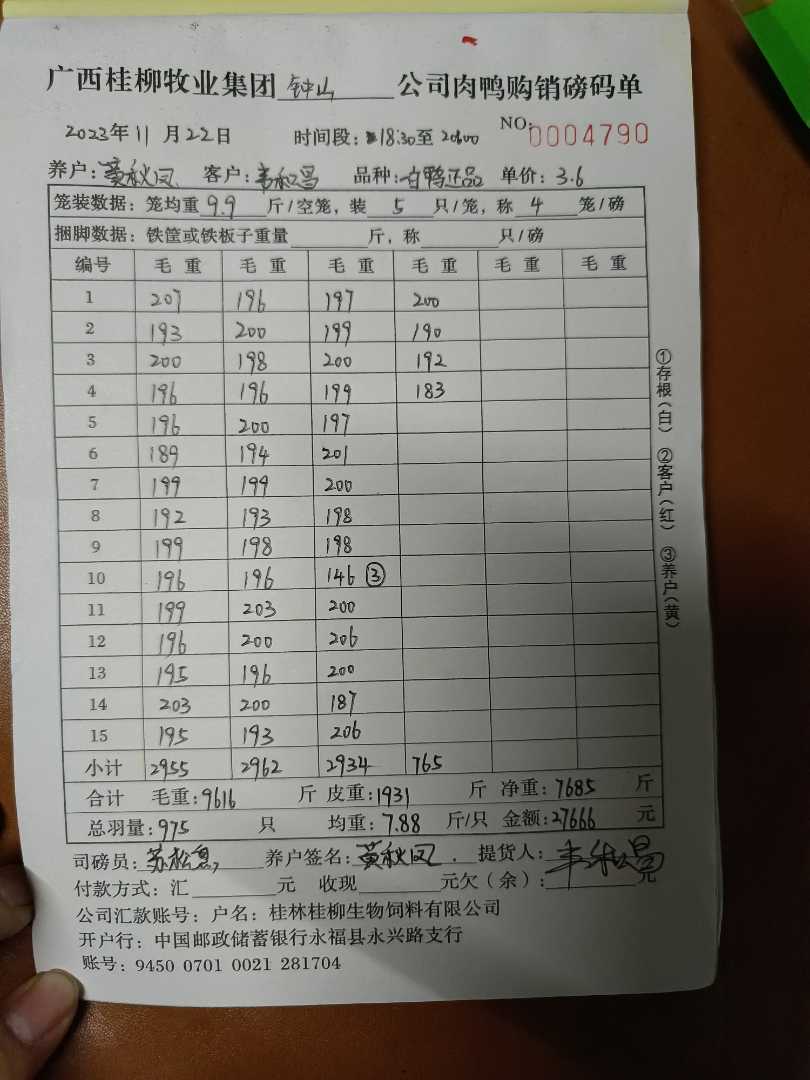 广西桂柳牧业集团 钟山 公司肉鸭购销磅码单
2023年11月22日 时间段:18:30至20:00 NO:0004790
养户:黄秋凤 客户:韦松昌 品种:白鸭正品 单价:3.6
笼装数据:笼均重 9.9 斤/空笼,装 5 只/笼,称 4 笼/磅
捆脚数据:铁筐或铁板子重量 斤,称 只/磅
编号 毛重 毛重 毛重 毛重 毛重 毛重
1 207 196 197 200
2 193 200 199 190
3 200 198 200 192
4 196 196 199 183
5 196 200 197
6 189 194 201
7 199 199 200
8 192 193 198
9 199 198 198
10 196 196 146 ③
11 199 203 200
12 196 200 206
13 195 196 200
14 203 200 187
15 195 193 206
小计 2955 2962 2934 765
合计 毛重:9616 斤 皮重:1931 斤 净重:7685 斤
总羽量:975 只 均重:7.88 斤/只 金额:27666 元
司磅员: 养户签名:黄秋凤. 提货人:韦松昌
付款方式:汇 元 收现 元欠(余): 元
公司汇款账号:户名:桂林桂柳生物饲料有限公司
开户行:中国邮政储蓄银行永福县永兴路支行
账号:9450 0701 0021 281704
①存根(白) ②客户(红) ③养户(黄)